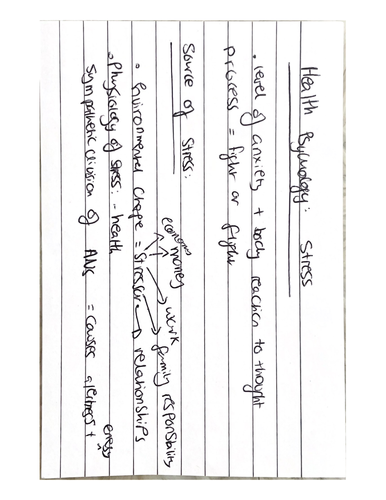 Health Psychology: Stress
• level of anxiety + body reaction to thought
process = fight or flight
Source of Stress:
economics money work family responsibility
• environmental change = Stressor → relationships
• physiology of stress: - health
energy
sympathetic division of ANS = causes alertness +